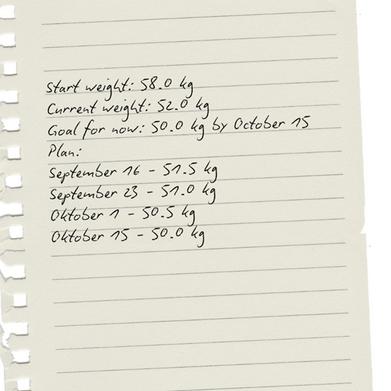 Start weight: 58.0 kg
Current weight: 52.0 kg
Goal for now: 50.0 kg by October 15
Plan:
September 16 - 51.5 kg
September 23 - 51.0 kg
Oktober 1 - 50.5 kg
Oktober 15 - 50.0 kg